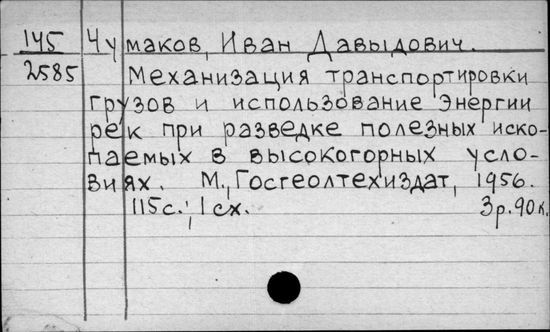 145 Чумаков, Иван Давыдович.
2585 Механизация транспортировки
грузов и использование энергии
рек при разведке полезных иско-
паемых в высокогорных усло-
виях. М., Госгеолтехиздат, 1956.
115 с.; 1 сх. 3 р. 90 к.